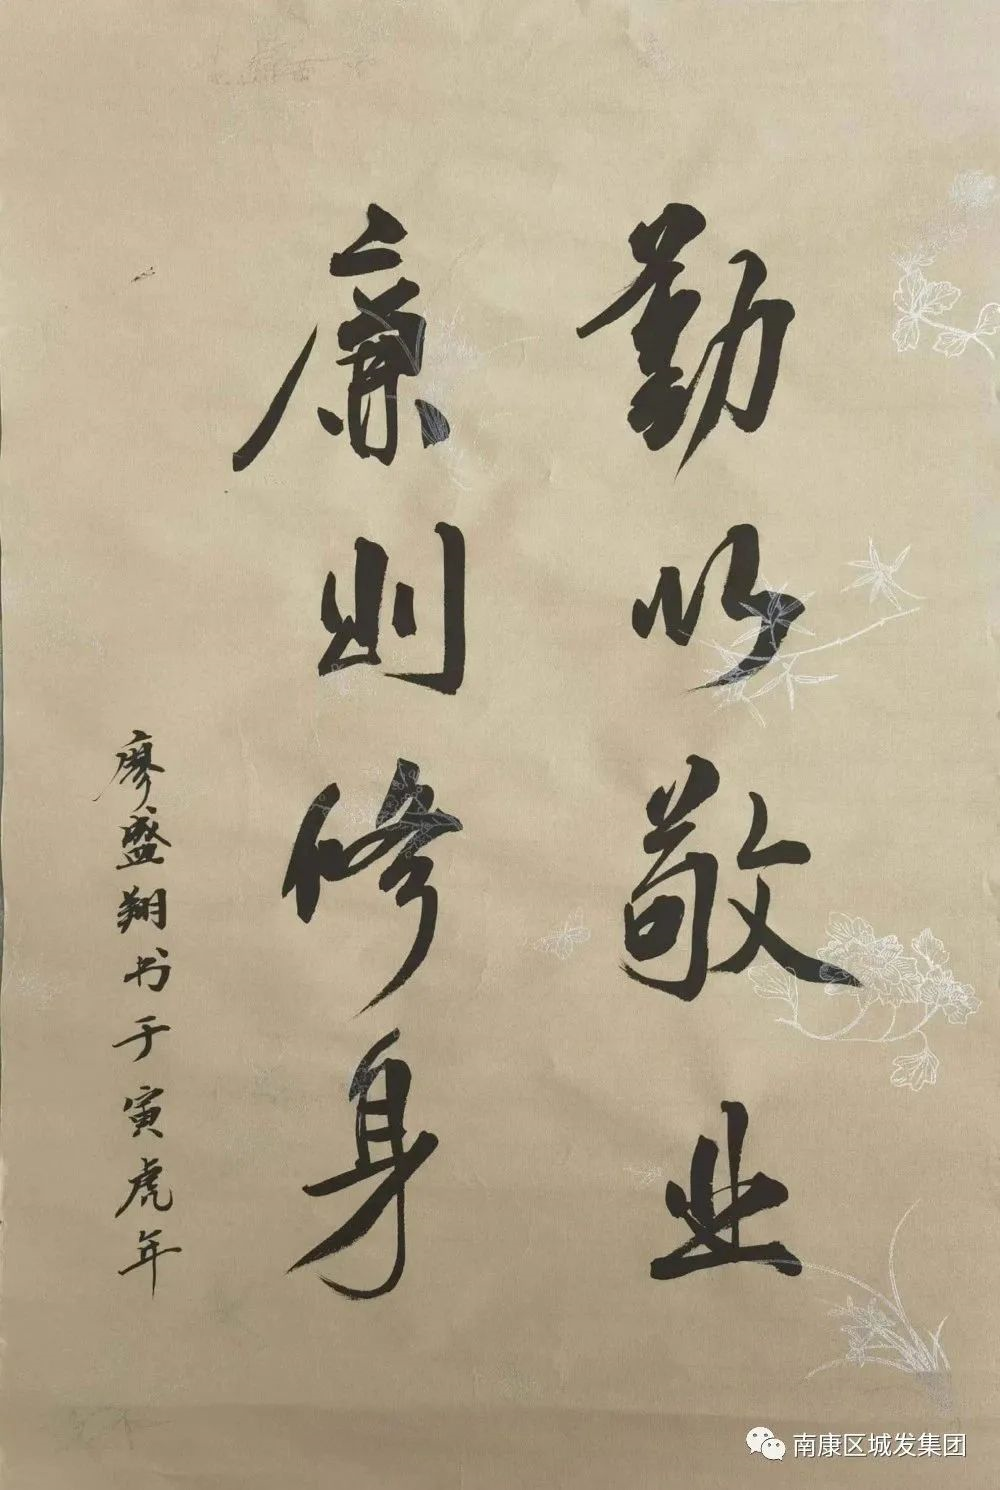 勤以敬业
廉则修身
廖盛翔书于寅虎年
南康区城发集团